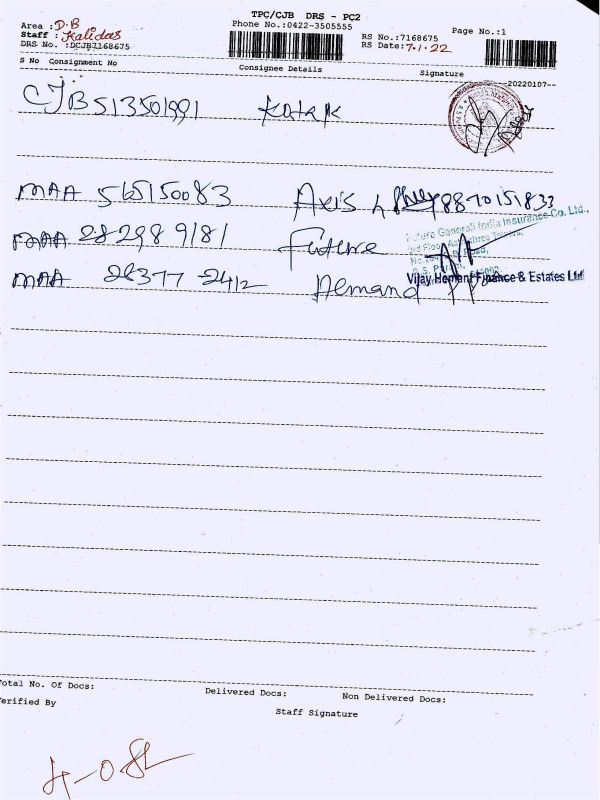 TPC/CJB DRS - PC2
Area : D.B Phone No.:0422-3505555 RS No.:7168675 Page No.:1
Staff : Kalidas RS Date: 7.1.22
DRS No. :DCJB7168675
S No Consignment No Consignee Details Signature
--20220107--
CJB 513501991 Kotak
MAA 565150083 Axis 8870151833
MAA 282989181 Future
Future Generali India Insurance Co. Ltd.,
MAA 28377 2412 Demand
Vijay Hemant Finance & Estates Ltd
Total No. Of Docs: Delivered Docs: Non Delivered Docs:
Verified By Staff Signature